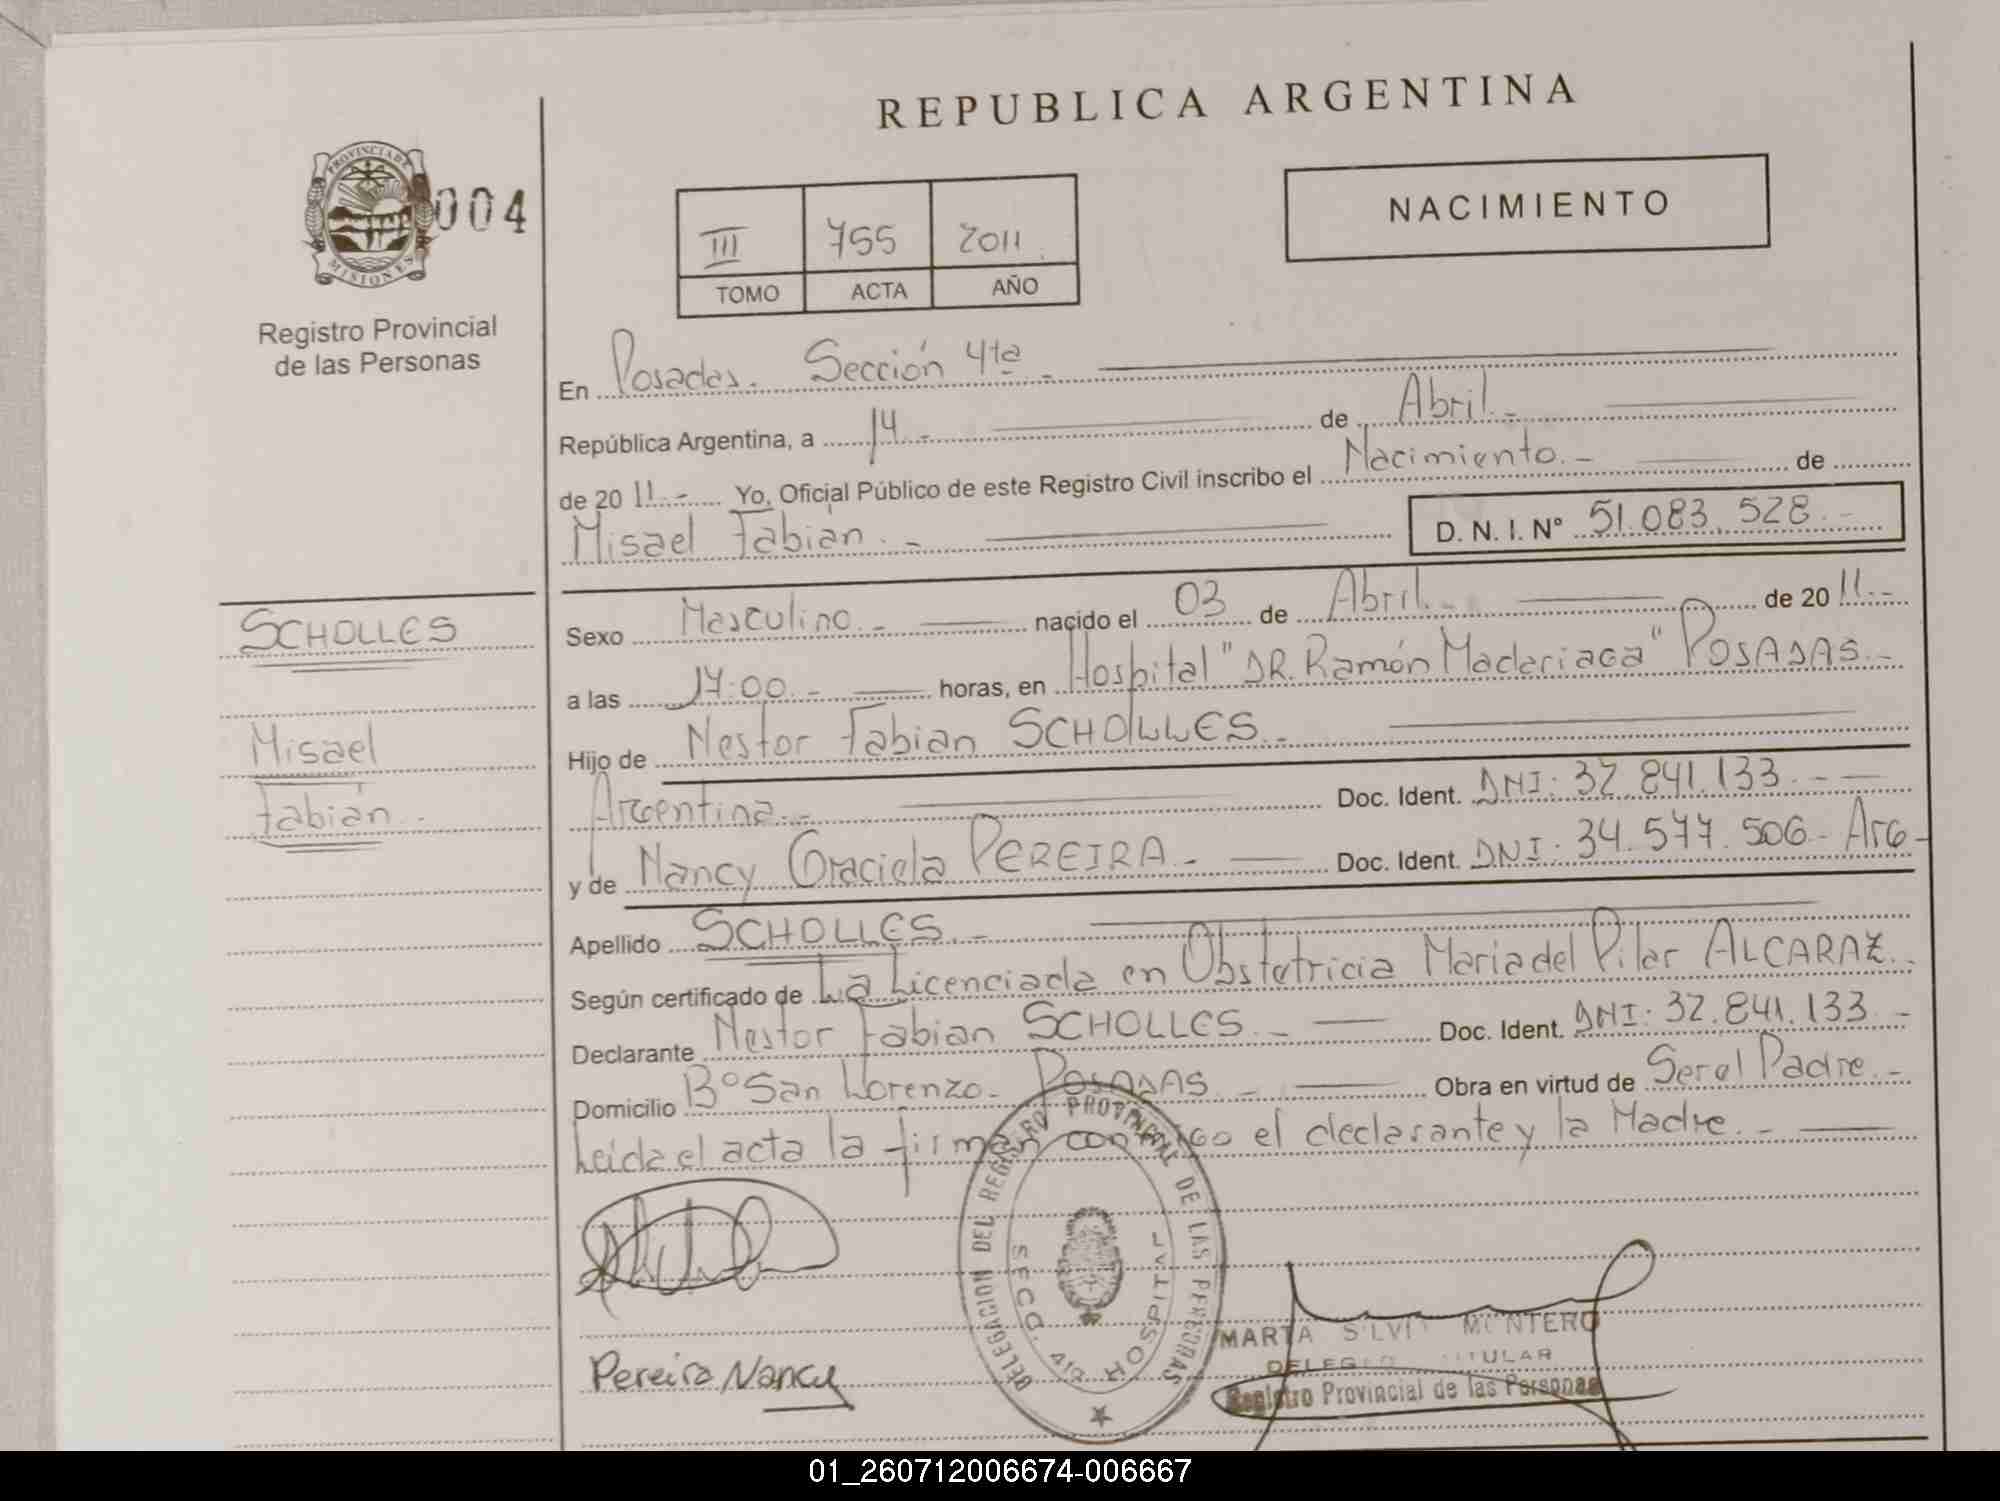 REPUBLICA ARGENTINA
PROVINCIA DE MISIONES
004
Registro Provincial
de las Personas
III 755 2011
TOMO ACTA AÑO
NACIMIENTO
En Posadas. Sección 4ta -
República Argentina, a 14 - de Abril. -
de 20 11. - Yo, Oficial Público de este Registro Civil inscribo el Nacimiento. - de
Misael Fabian. - D. N. I. N° 51.083.528. -
SCHOLLES
Misael
Fabián. -
Sexo Masculino. - nacido el 03 de Abril. - de 20 11. -
a las 17:00. - horas, en Hospital "DR. Ramón Madariaga" POSADAS. -
Hijo de Nestor Fabian SCHOLLES. -
Argentina. - Doc. Ident. DNI: 32.841.133. - -
y de Nancy Graciela PEREIRA. - Doc. Ident. DNI: 34.577.506 - Arg -
Apellido SCHOLLES. -
Según certificado de La Licenciada en Obstetricia Maria del Pilar ALCARAZ. -
Declarante Nestor Fabian SCHOLLES. - Doc. Ident. DNI: 32.841.133. -
Domicilio B° San Lorenzo - POSADAS. - Obra en virtud de Ser el Padre. -
Leida el acta la firman conmigo el declarante y la Madre. -
DELEGACION DEL REGISTRO PROVINCIAL DE LAS PERSONAS
SECC. 4ta HOSPITAL
Pereira Nancy
MARTA SILVIA MONTERO
TITULAR
Registro Provincial de las Personas
01_260712006674-006667